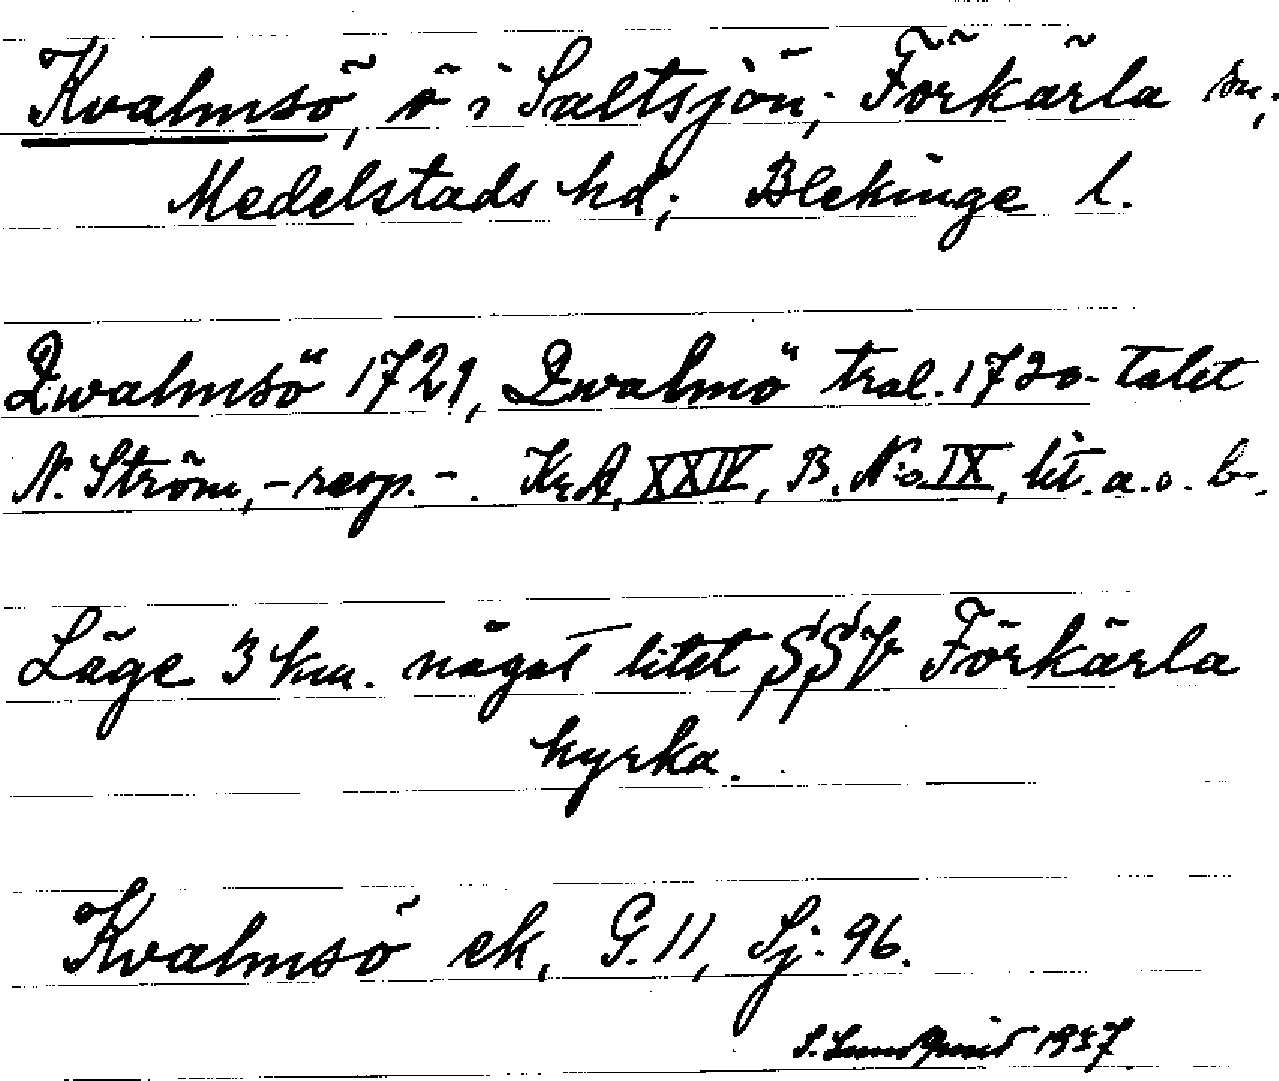 Kvalmsö, ö i Saltsjön; Förkärla sn;
Medelstads hd; Blekinge l.
Qwalmsö 1729, Qwalmö tral. 1730-talet
N. Ström, - resp. -. Kr A, XXIV, B. No IX, lit. a. o. b.
Läge 3 km. något litet SSV Förkärla
kyrka.
Kvalmsö ek, G. 11, Sj: 96.
S. Lundquist 1937